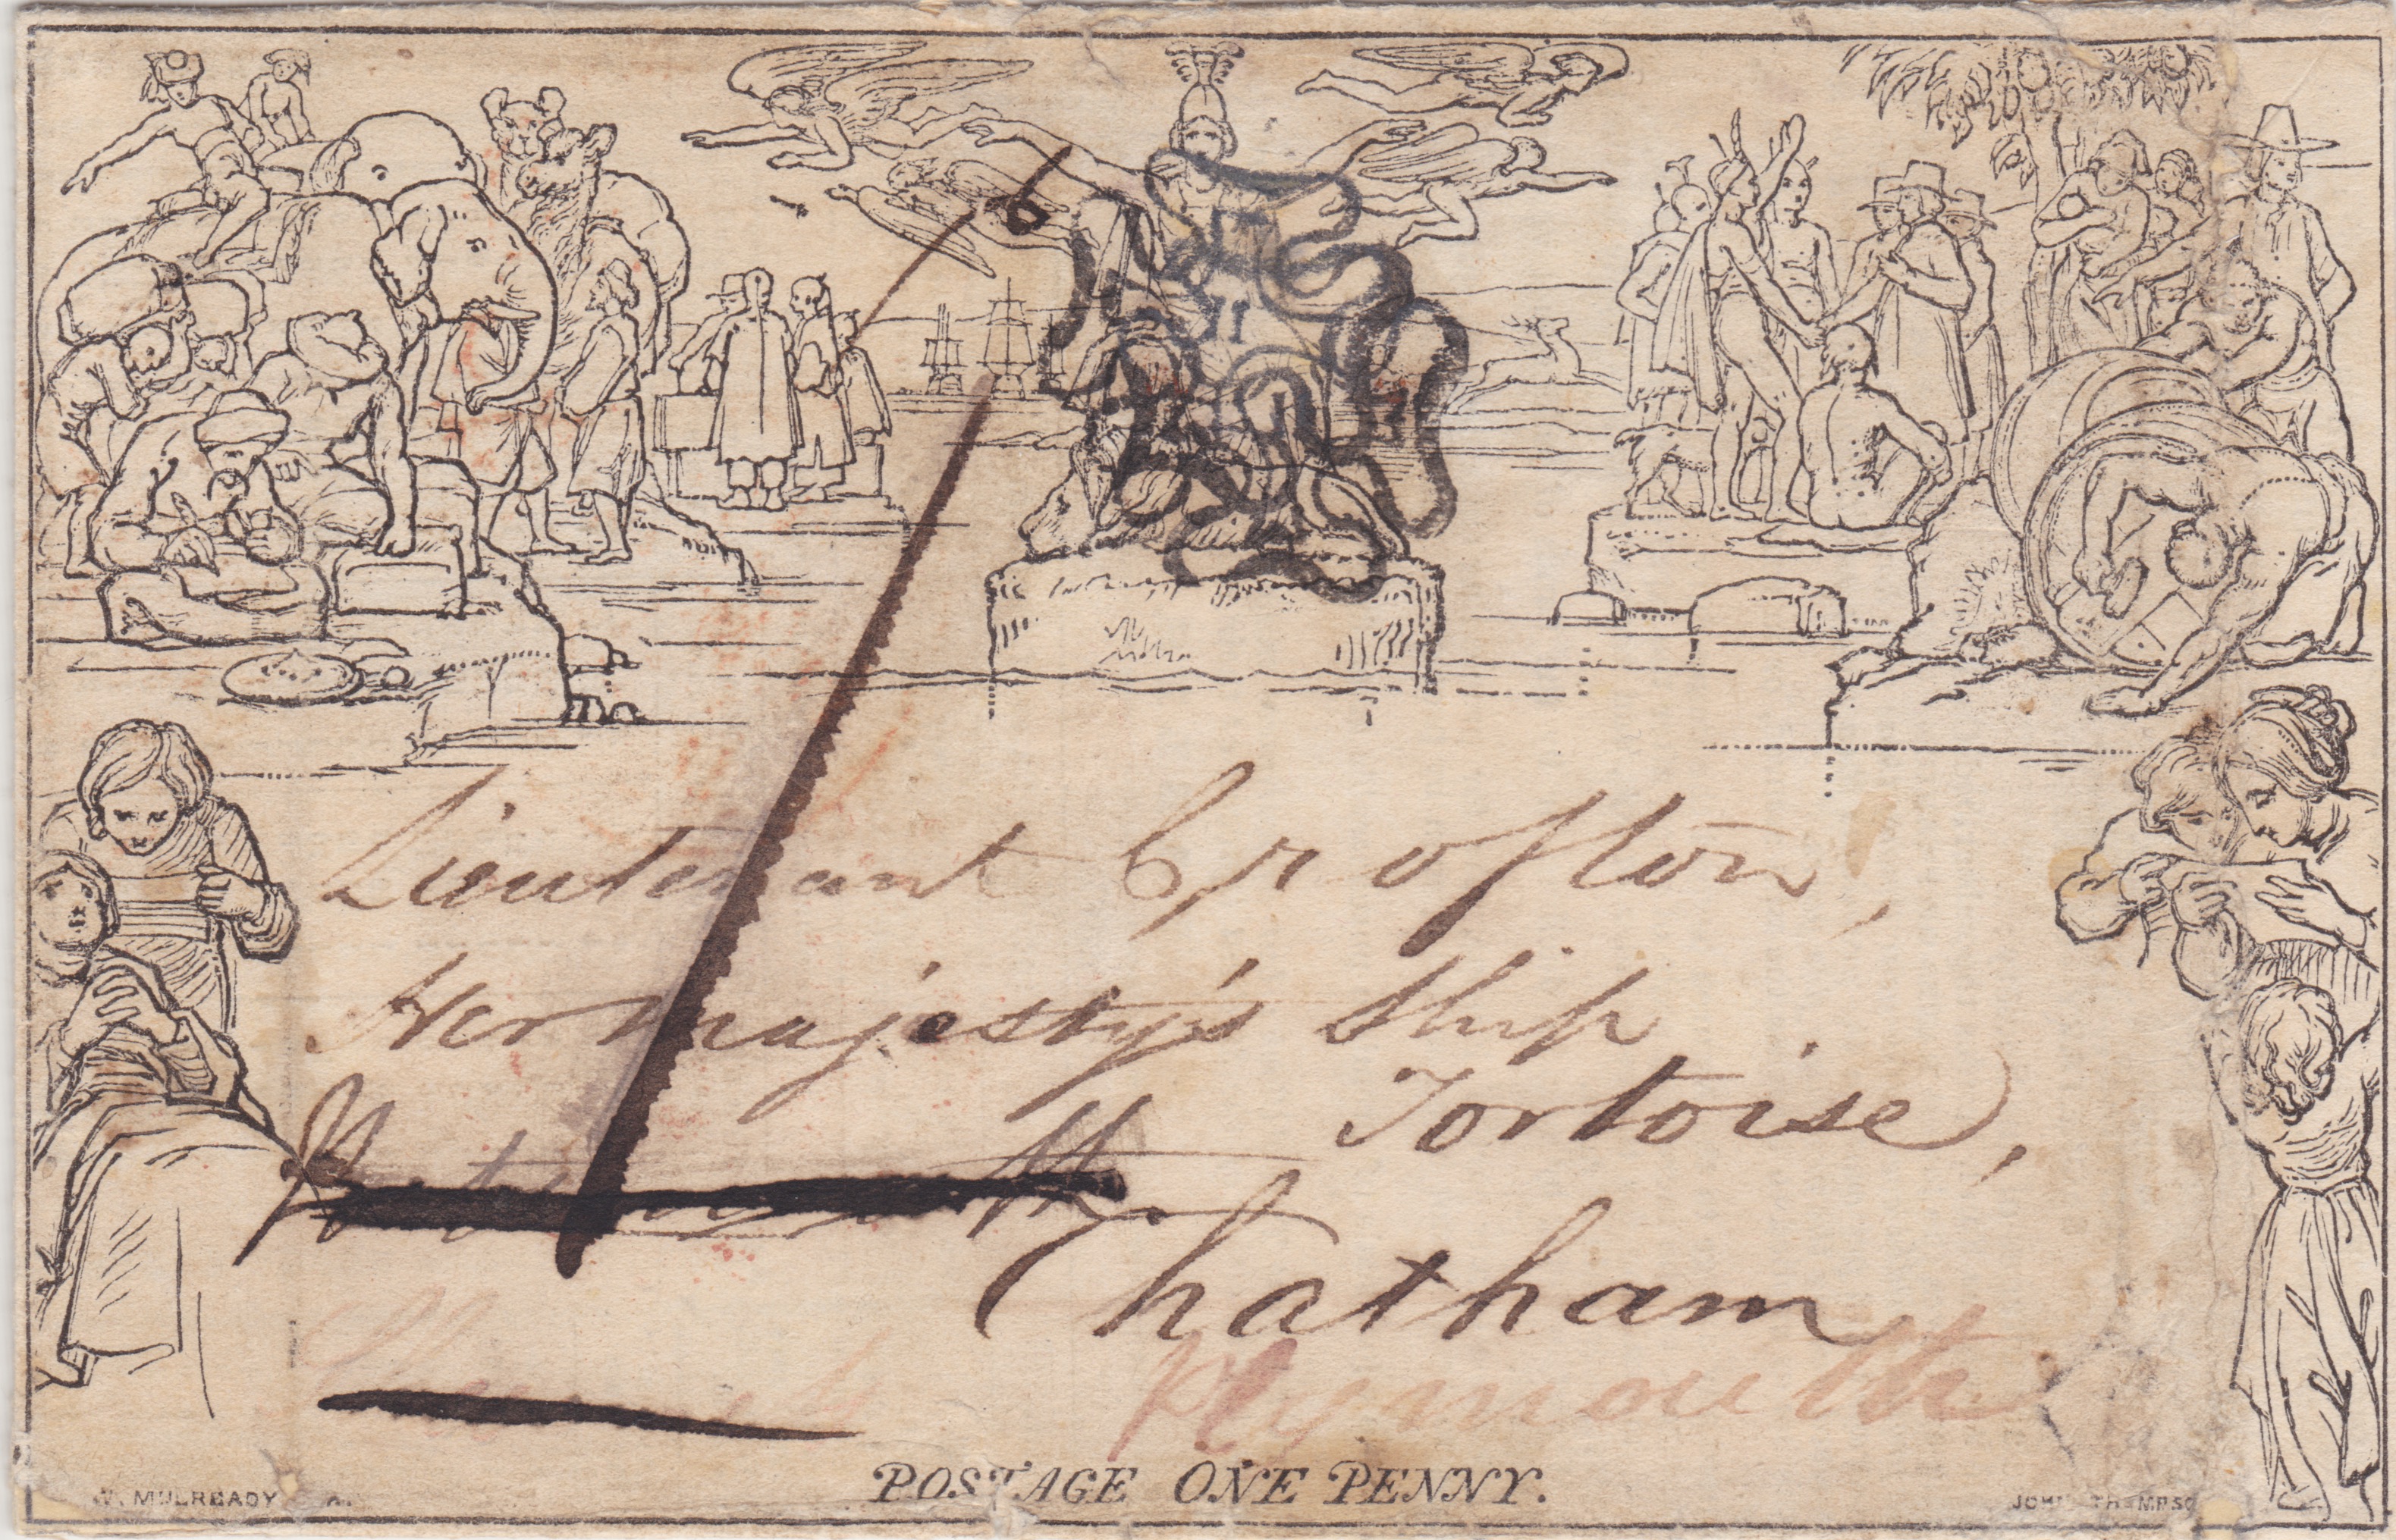 Lieutenant Crofton,
Her Majesty's Ship
Tortoise,
Chatham
Plymouth
POSTAGE ONE PENNY.
W. MULREADY
JOHN THOMPSO